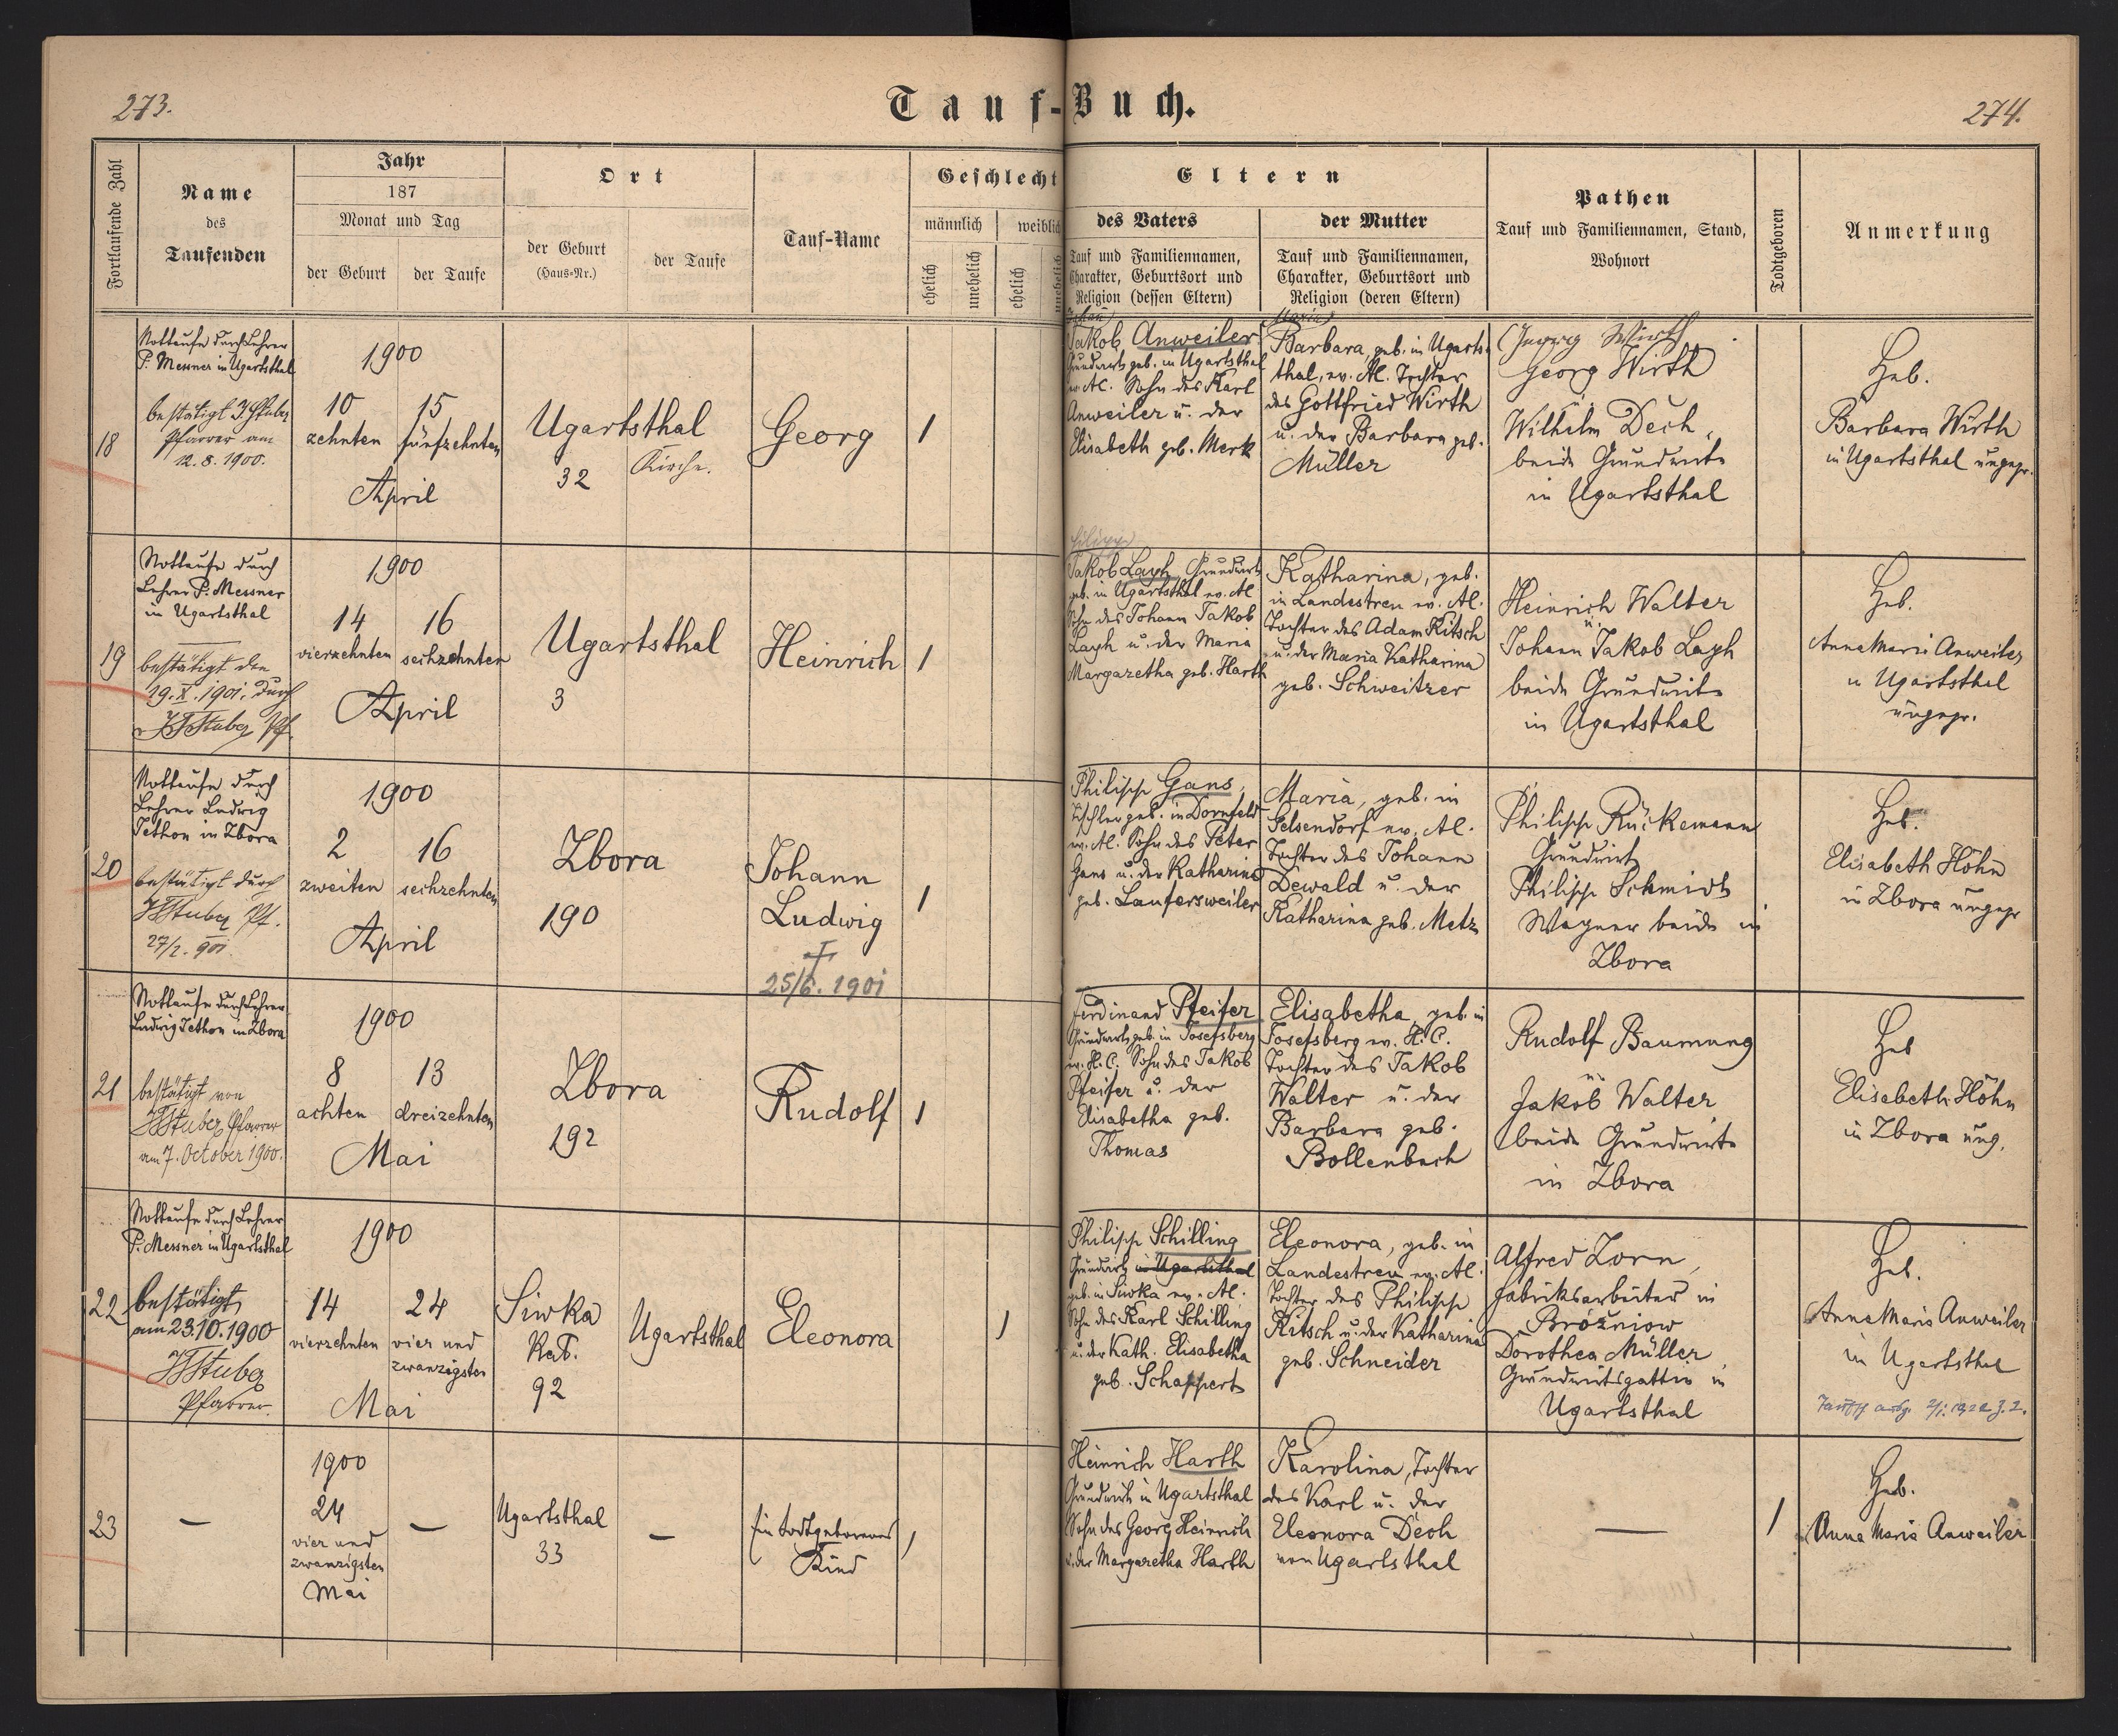 273.
Tauf-Buch.
274.
Fortlaufende Zahl
Name
des
Taufenden
Jahr
187
Monat und Tag
der Geburt
der Taufe
Ort
der Geburt
(Haus-Nr.)
der Taufe
Tauf-Name
Geschlecht
männlich
weiblich
ehelich
unehelich
ehelich
unehelich
Eltern
des Vaters
Tauf und Familiennamen,
Charakter, Geburtsort und
Religion (dessen Eltern)
der Mutter
Tauf und Familiennamen,
Charakter, Geburtsort und
Religion (deren Eltern)
Pathen
Tauf und Familiennamen, Stand,
Wohnort
Todtgeboren
Anmerkung
18
Nottaufe durch Lehrer
P. Messner in Ugartsthal
bestätigt J. Stuber
Pfarrer am
12.8.1900.
1900
10
zehnten
15
fünfzehnten
April
Ugartsthal
32
Kirche.
Georg
1
Johann
Jakob Anweiler
Grundwirt geb. in Ugartsthal
ev. Al. Sohn des Karl
Anweiler u. der
Elisabeth geb. Merk
Maria
Barbara, geb. in Ugarts-
thal, ev. Al. Tochter
des Gottfried Wirth
u. der Barbara geb.
Müller
Georg Wirth
Georg Wirth
Wilhelm Dech,
beide Grundwirte
in Ugartsthal
Heb.
Barbara Wirth
in Ugartsthal ungepr.
19
Nottaufe durch
Lehrer P. Messner
in Ugartsthal
bestätigt den
19.X.1901. durch
Stuber Pf.
1900
14
vierzehnten
16
sechzehnten
April
Ugartsthal
3
Heinrich
1
Philipp
Jakob Layh, Grundwirt
geb. in Ugartsthal ev. Al
Sohn des Johann Jakob
Layh u. der Maria
Margaretha geb. Harth
Katharina, geb.
in Landestreu ev. Al.
Tochter des Adam Kitsch
u. der Maria Katharina
geb. Schweitzer
Heinrich Walter
u.
Johann Jakob Layh
beide Grundwirte
in Ugartsthal
Heb.
Anna Maria Anweiler
in Ugartsthal
ungepr.
20
Nottaufe durch
Lehrer Ludwig
Jethon in Zbora
bestätigt durch
Stuber Pf.
27/2. 901.
1900
2
zweiten
16
sechzehnten
April
Zbora
190
Johann
Ludwig
†
25/6. 1901
1
Philipp Gans,
Tischler geb. in Dornfeld
ev. Al. Sohn des Peter
Gans u. der Katharina
geb. Laufersweiler
Maria, geb. in
Gelsendorf ev. Al.
Tochter des Johann
Dewald u. der
Katharina geb. Metz
Philipp Rückemann
Grundwirt
Philipp Schmidt
Wagner beide in
Zbora
Heb.
Elisabeth Höhn
in Zbora ungepr
21
Nottaufe durch Lehrer
Ludwig Jethon in Zbora
bestätigt von
Stuber Pfarrer
am 7. October 1900.
1900
8
achten
13
dreizehnten
Mai
Zbora
192
Rudolf
1
Ferdinand Pfeifer
Grundwirt geb. in Josefsberg
ev. H.C. Sohn des Jakob
Pfeifer u. der
Elisabetha geb.
Thomas
Elisabetha, geb. in
Josefsberg ev. H.C.
Tochter des Jakob
Walter u. der
Barbara geb.
Bollenbach
Rudolf Baumung
u.
Jakob Walter
beide Grundwirte
in Zbora
Heb
Elisabeth Höhn
in Zbora ung.
22
Nottaufe durch Lehrer
P. Messner in Ugartsthal
bestätigt
am 23.10.1900
Stuber
Pfarrer.
1900
14
vierzehnten
24
vier und
zwanzigsten
Mai
Siwka
Kat.
92
Ugartsthal
Eleonora
1
Philipp Schilling
Grundwirt in Ugartsthal
geb. in Siwka ev. Al.
Sohn des Karl Schilling
u. der Kath. Elisabetha
geb. Schappert
Eleonora, geb. in
Landestreu ev. Al.
Tochter des Philipp
Kitsch u. der Katharina
geb. Schneider
Alfred Zorn,
Fabriksarbeiter in
Bróżniow
Dorothea Müller
Grundwirtsgattin in
Ugartsthal
Heb.
Anna Maria Anweiler
in Ugartsthal
23
—
1900
24
vier und
zwanzigsten
Mai
—
Ugartsthal
33
—
Ein todtgeborenes
Kind
1
Heinrich Harth
Grundwirt in Ugartsthal
Sohn des Georg Heinrich
u. der Margaretha Harth
Karolina, Tochter
des Karl u. der
Eleonora Dech
von Ugartsthal
—
1
Heb.
Anna Maria Anweiler